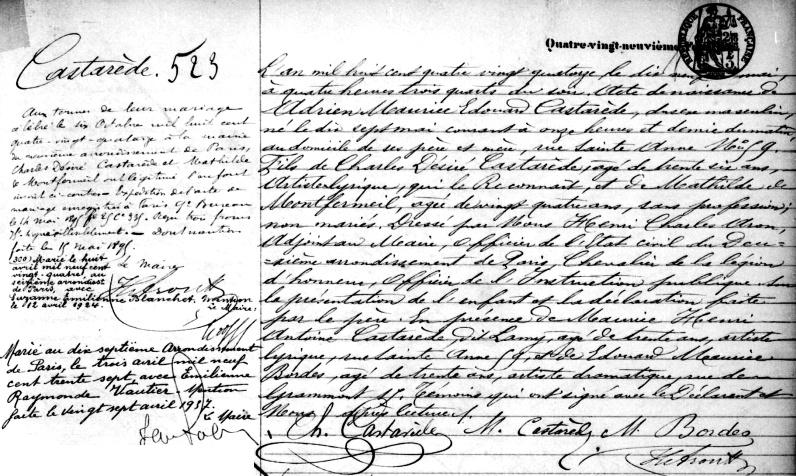 Castarède. 523
Aux termes de leur mariage
célébré le six Octobre mil huit cent
quatre-vingt-quatorze à la mairie
du neuvième arrondissement de Paris,
Charles Désiré Castarède et Mathilde
de Montfermeil ont légitimé l'enfant
inscrit ci-contre. Expédition de l'acte de
mariage enregistrée à Paris
le 14 mai 1895
Dont mention
faite le 15 mai 1895.
Le Maire
Marié le huit
avril mil neuf cent
vingt-quatre, au
arrondisst
de Paris, avec
Suzanne Emilienne Blanchet. Mention
le 12 avril 1924. Le Maire
Marié au dix septième Arrondissement
de Paris, le trois avril mil neuf
cent trente sept avec Emilienne
Raymonde Vautier Mention
faite le vingt sept avril 1937.
Le Maire
Quatre-vingt-neuvième
RÉPUBLIQUE FRANÇAISE
L'an mil huit cent quatre vingt quatorze, le dix neuf mai,
à quatre heures trois quarts du soir, Acte de naissance de
Adrien Maurice Edouard Castarède, du sexe masculin,
né le dix sept mai courant à onze heures et demie du matin,
au domicile de ses père et mère, rue Sainte Anne No 59.
Fils de Charles Désiré Castarède, agé de trente six ans,
Artiste lyrique, qui le Reconnait, et de Mathilde de
Montfermeil agée de vingt quatre ans, sans profession;
non mariés. Dressé par Nous Henri Charles Aron,
Adjoint au Maire, Officier de l'Etat civil du Deu-
xième arrondissement de Paris, Chevalier de la légion
d'honneur, Officier de l'Instruction publique sur
la présentation de l'enfant et la déclaration faite
par le père. En présence de Maurice Henri
Antoine Castarède, dit Lamy, agé de trente ans, artiste
lyrique, rue Sainte Anne 59, et de Edouard Maurice
Bordes, agé de trente ans, artiste dramatique, rue de
Grammont Témoins qui ont signé avec le Déclarant et
Nous, après lecture.
Ch. Castarède M. Castarède M Bordes